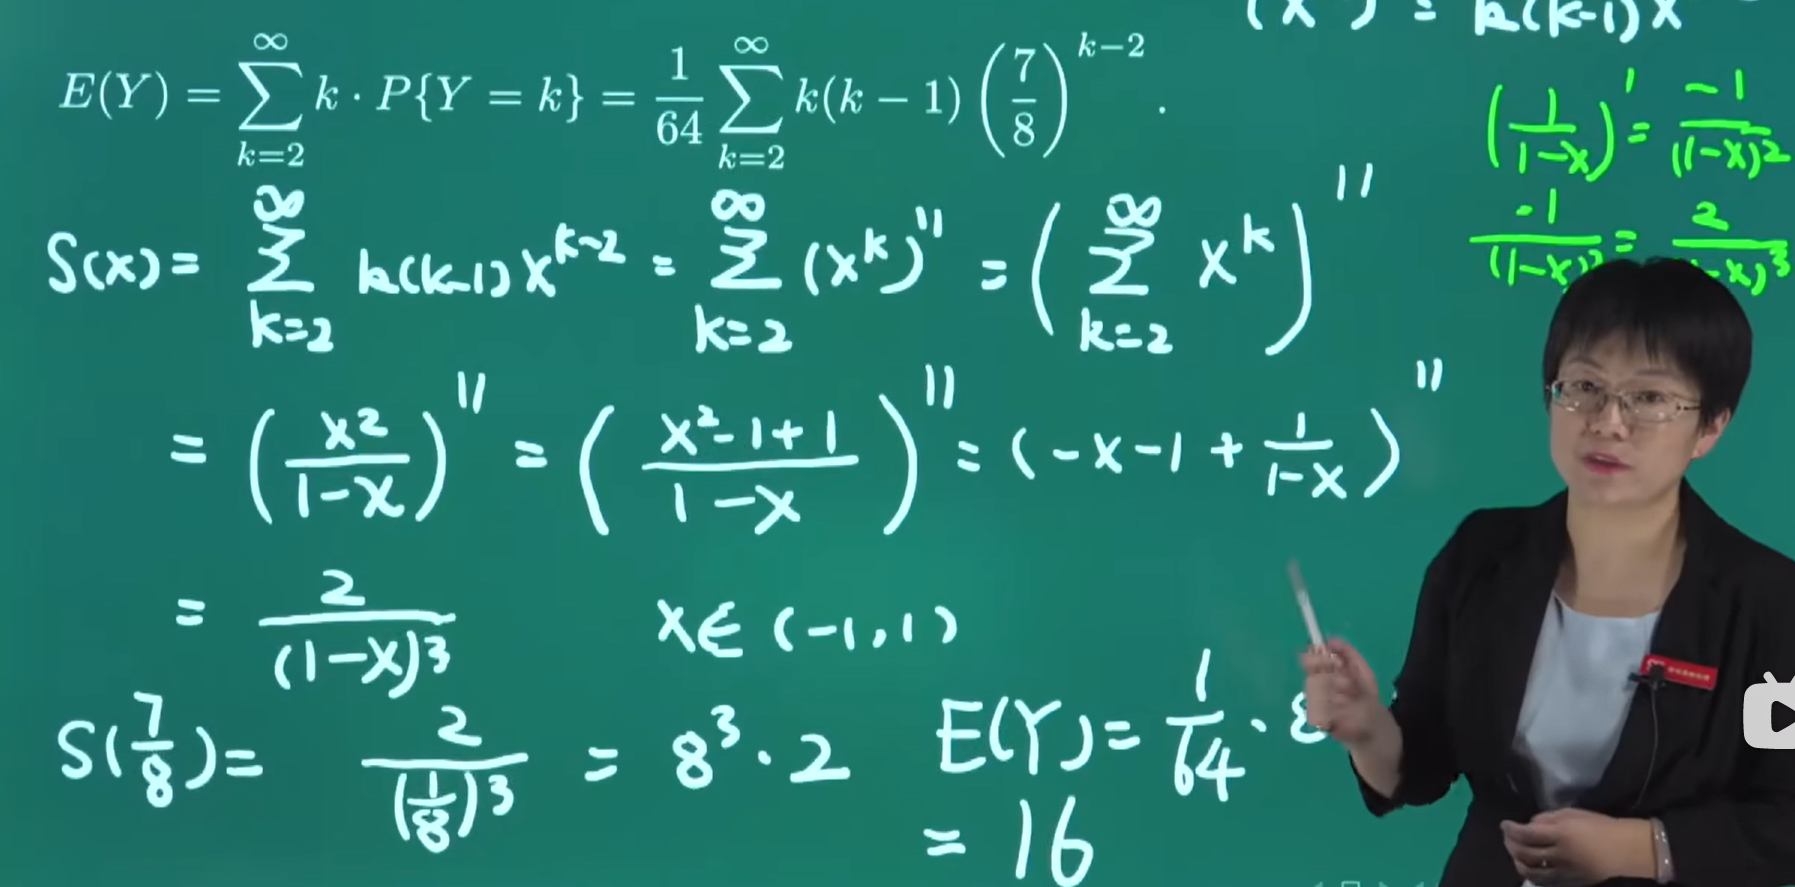 (x ) = k(k-1)x
E(Y) = \sum_{k=2}^{\infty} k \cdot P\{Y = k\} = \frac{1}{64} \sum_{k=2}^{\infty} k(k-1) \left(\frac{7}{8}\right)^{k-2} .
\left(\frac{1}{1-x}\right)' = \frac{-1}{(1-x)^2}
S(x) = \sum_{k=2}^{\infty} k(k-1)x^{k-2} = \sum_{k=2}^{\infty} (x^k)'' = \left(\sum_{k=2}^{\infty} x^k\right)''
\frac{-1}{(1-x)} = \frac{2}{-x)^3}
= \left(\frac{x^2}{1-x}\right)'' = \left(\frac{x^2-1+1}{1-x}\right)'' = \left(-x-1+\frac{1}{1-x}\right)''
= \frac{2}{(1-x)^3} x \in (-1,1)
S(\frac{7}{8}) = \frac{2}{(\frac{1}{8})^3} = 8^3 \cdot 2
E(Y) = \frac{1}{64} \cdot 8
= 16